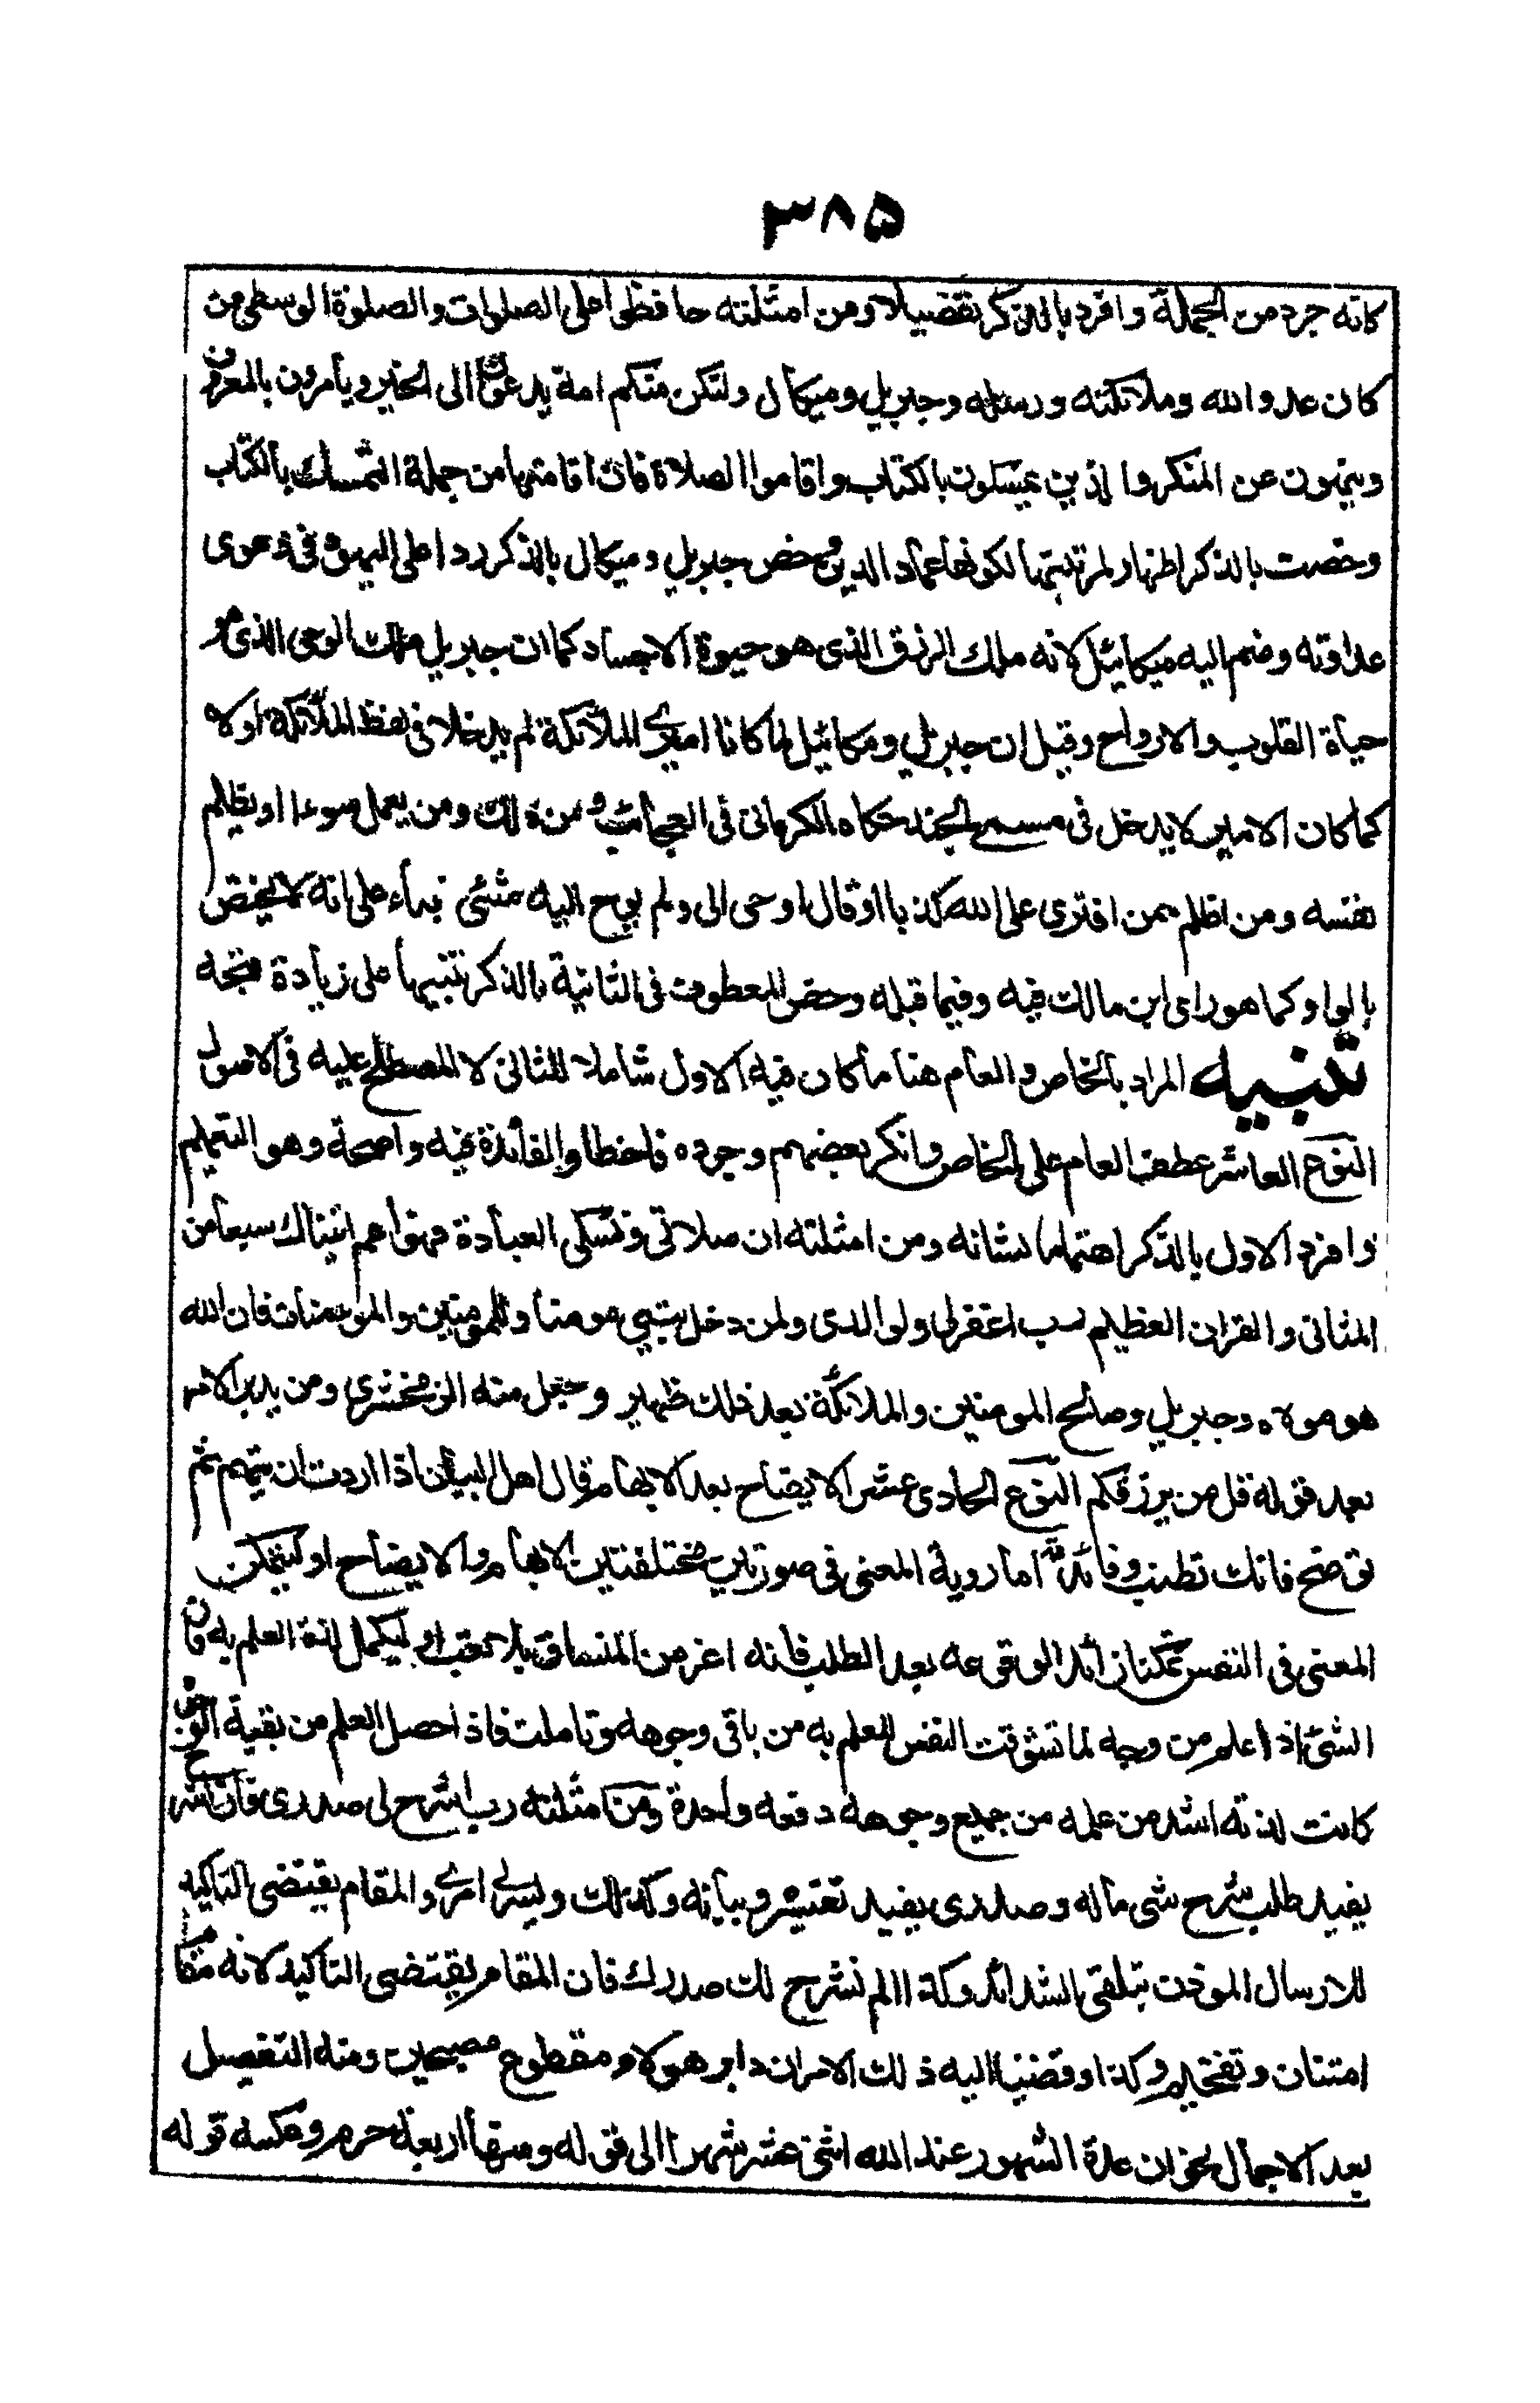 ٣٨٥
كانه جرد من الجملة وافرد بالذكر تفضيلا ومن امثلته حافظوا على الصلوات والصلوة الوسطى من
كان عدوا لله وملائكته ورسله وجبريل وميكال ولتكن منكم امة يدعون الى الخير ويأمرون بالمعروف
وينهون عن المنكر والذين يمسكون بالكتاب واقاموا الصلاة فان اقامتها من جملة التمسك بالكتاب
وخصت بالذكر اظهارا لمرتبتها لكونها عماد الدين وخص جبريل وميكال بالذكر ردا على اليهود فى دعوى
عداوته وضم اليه ميكائيل لانه ملك الرزق الذى هو حيوة الاجساد كما ان جبريل ملك الوحى الذى هو
حياة القلوب والارواح وقيل ان جبريل وميكائيل لما كانا اميرى الملائكة لم يدخلا فى لفظ الملائكة اولا
كما كان الامير لا يدخل فى مسمى الجند حكاه الكرمانى فى العجائب ومن ذلك ومن يعمل سوءا او يظلم
نفسه ومن اظلم ممن افترى على الله كذبا او قال اوحى الى ولم يوح اليه شئى بناء على انه لا يختص
بالواو كما هو راى ابن مالك فيه وفيما قبله وخص المعطوف فى الثانية بالذكر تنبيها على زيادة قبحه
تنبيه المراد بالخاص والعام هنا ما كان فيه الاول شاملا للثانى لا المصطلح عليه فى الاصول
النوع العاشر عطف العام على الخاص وانكر بعضهم وجوده فاخطا والفائدة فيه واضحة وهو التعميم
وافرد الاول بالذكر اهتماما بشانه ومن امثلته ان صلاتى ونسكى العبادة فهو اعم اتيناك سبعا من
المثانى والقران العظيم رب اغفرلى ولوالدى ولمن دخل بيتى مومنا وللمومنين والمومنات فان الله
هو موله وجبريل وصالح المومنين والملائكة بعد ذلك ظهير وجعل منه الزمخشرى ومن يدبر الامر
بعد قوله قل من يرزقكم النوع الحادى عشر الايضاح بعد الابهام قال اهل البيان اذا اردت ان تبهم ثم
توضح فانك تطنب وفائدته اما روية المعنى فى صورتين مختلفتين الابهام والايضاح او ليتمكن
المعنى فى النفس تمكنا زائدا لوقوعه بعد الطلب فانه اعز من المنساق بلا تعب او ليكمل لذة العلم به فان
الشئ اذا علم من وجه ما تشوقت النفس للعلم به من باقى وجوهه وتاملت فاذا حصل العلم من بقية الوجوه
كانت لذته اشد من علمه من جميع وجوهه دفعه واحدة ومن امثلته رب اشرح لى صدرى فان اشرح
يفيد طلب شرح شى ماله وصدرى يفيد تفسيره وبيانه وكذلك ويسرلى امرى والمقام يقتضى التاكيد
للارسال الموذن بتلقى الشدائد وكذا الم نشرح لك صدرك فان المقام يقتضى التاكيد لانه مقام
امتنان وتفخيم وكذا وقضينا اليه ذلك الامر ان دابر هولاء مقطوع مصبحين ومنه التفصيل
بعد الاجمال نحو ان عدة الشهور عند الله اثنى عشر شهرا الى قوله ومنها اربعة حرم وعكسه قوله